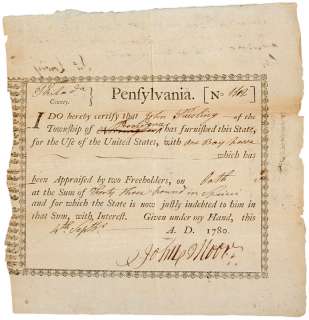 Philada Pensylvania. [No
County.
I DO hereby certify that John Pawling of the
Township of Providence has furnished this State,
for the Use of the United States, with one Bay horse
which has
been Appraised by two Freeholders, on Oath
at the Sum of Thirty three pound in specie
and for which the State is now justly indebted to him in
that Sum, with Interest. Given under my Hand, this
4th Septr A. D. 1780.
John Moore